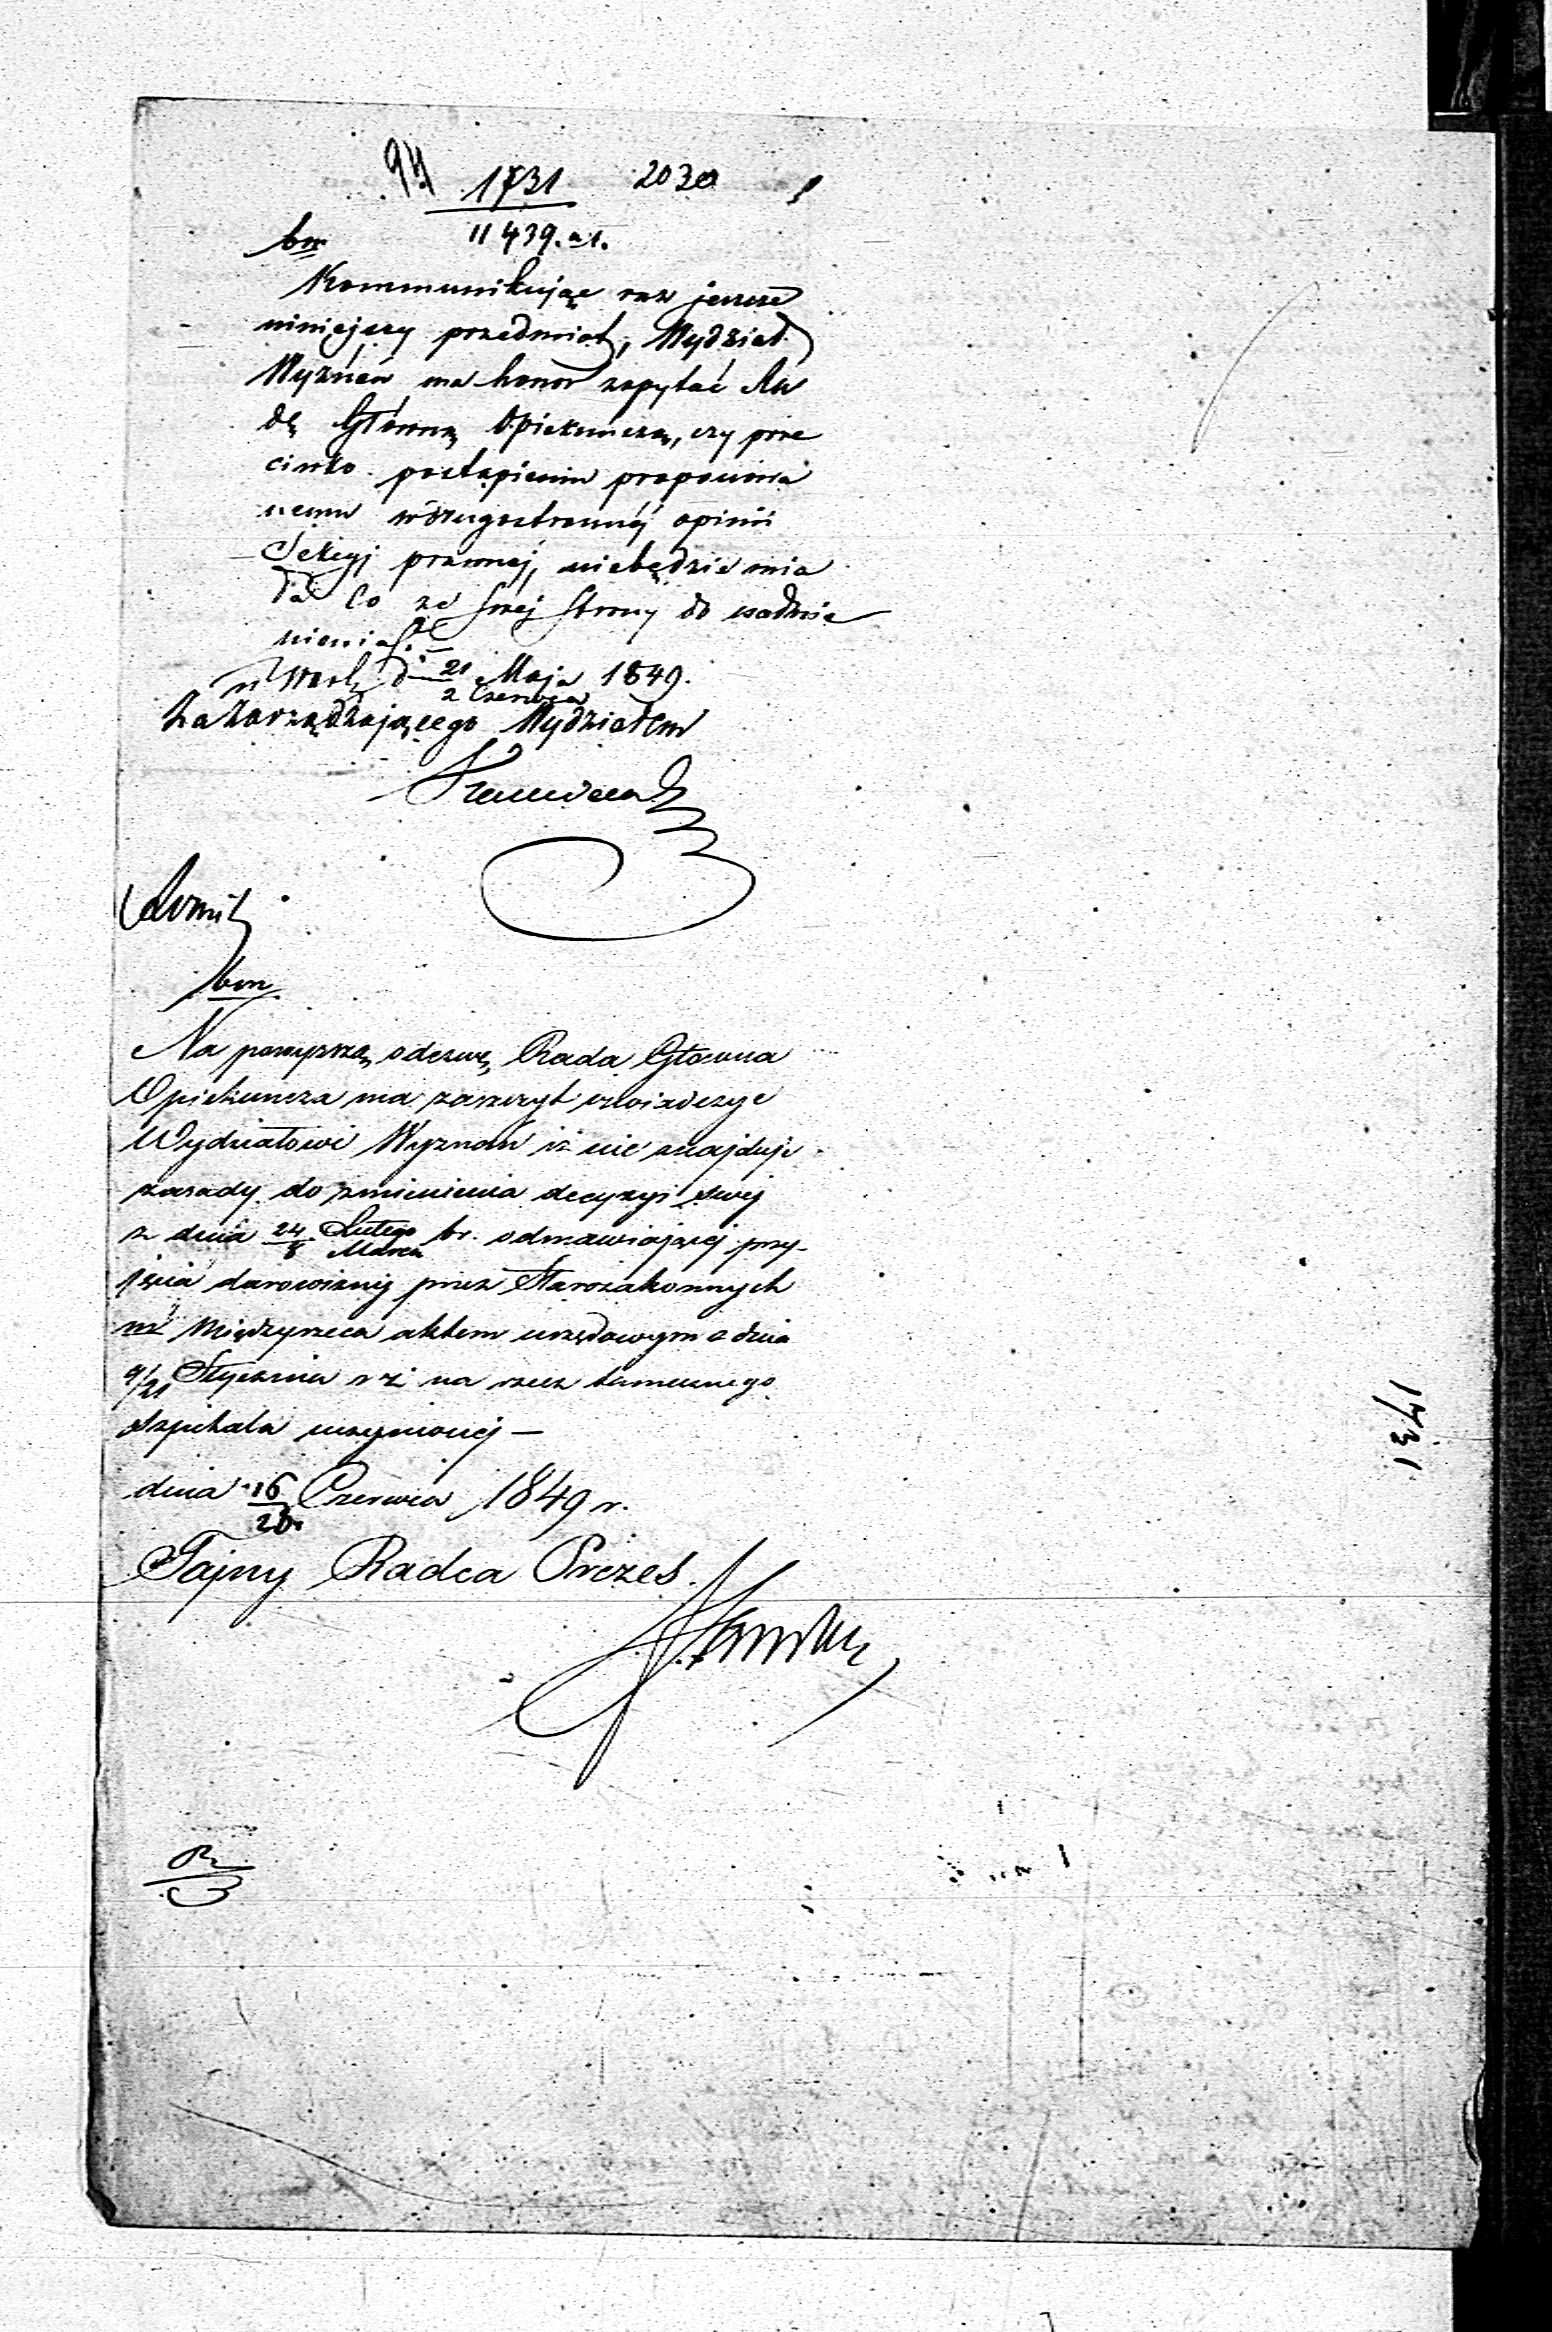 94 1731 2030
11439. a 1.
bm
Kommunikując raz jeszcze
niniejszy przedmiot, Wydział
Wyznań ma honor zapytać Ra
dę Główną Opiekuńczą, czy prze
ciwko postąpieniu propono­wa
nemu w drugostronnéj opinii
Sekcyj prawnej, niebędzie mia
ła co ze swej strony do nadmie
nienia.
w Warsz. d. 21 Maja / 2 Czerwca 1849.
Za Zarządzającego Wydziałem
bm
Na powyższą odezwę Rada Główna
Opiekuńcza ma zaszczyt oświadczyć
Wydziałowi Wyznań iż nie znajduje
zasady do zmienienia decyzyi swej
z dnia 24 Lutego / 8 Marca br. odmawiającej przy-
jęcia darowizny przez Starozakonnych
z Międzyrzeca aktem urzędowym z dnia
9/21 Stycznia r z na rzecz tamecznego
szpitala uczynionej —
dnia 16/28 Czerwca 1849 r.
Tajny Radca Prezes
1731